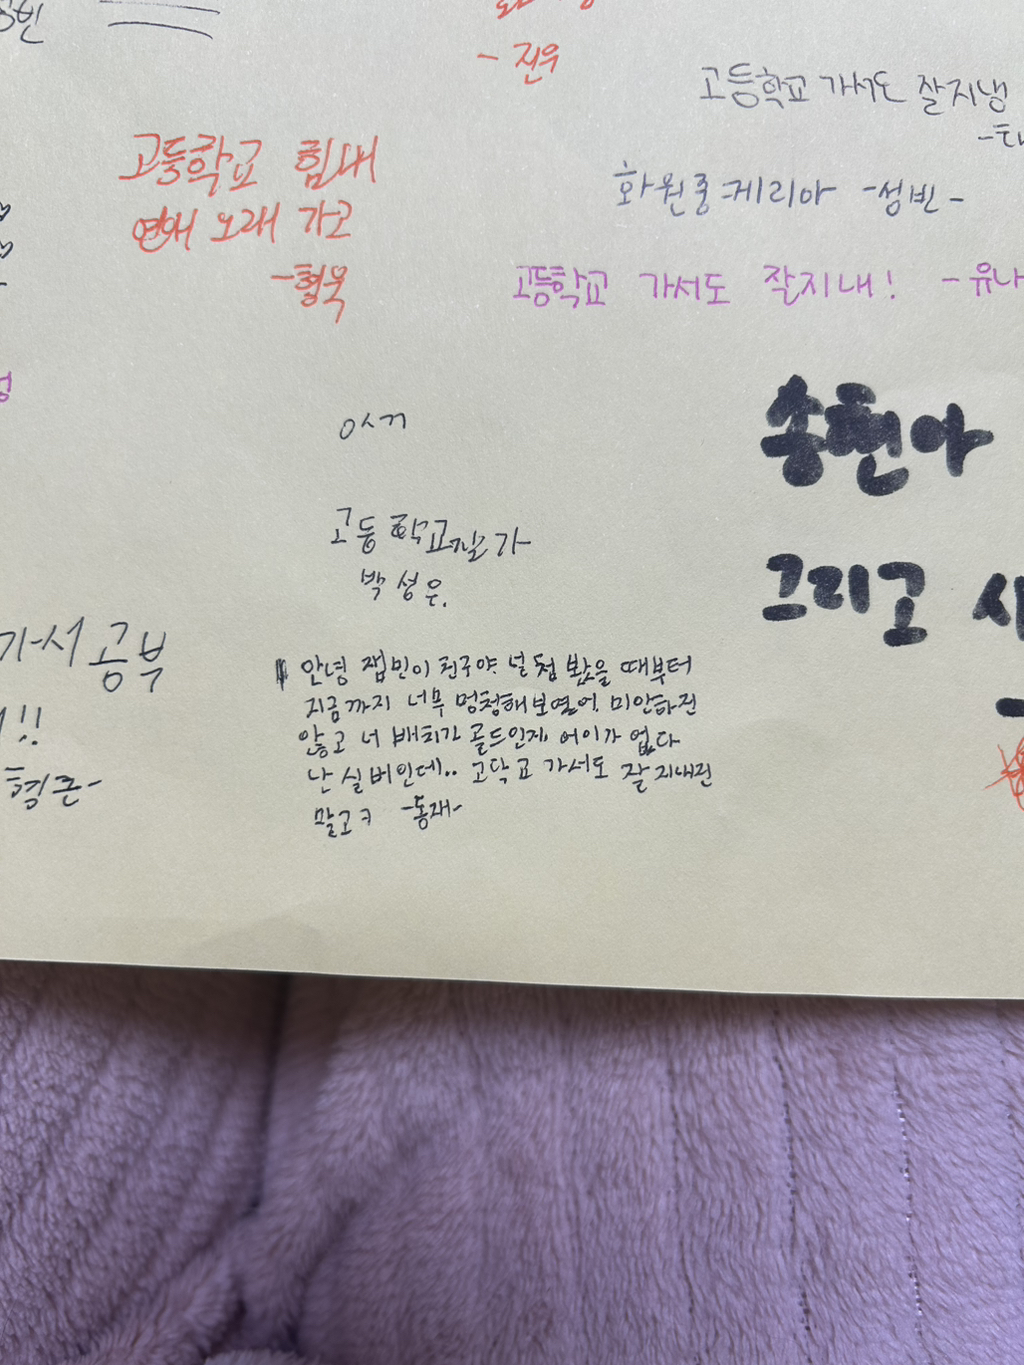 - 진우
고등학교 가서도 잘지냉
고등학교 힘내
연애 노래 가고
-혐욱
화원중케리아 -성빈-
고등학교 가서도 잘지내! -유나
송현아
ㅇㅅㄲ
고등학교잘가
박성우.
그리고
가서 공부
!!
형준-
안녕 잽민이 친구야. 널 첨 봤을 때부터
지금까지 너무 멍청해보였어. 미안하진
않고 너 배치가 골드인게 어이가 없다
난 실버인데.. 고닥교 가서도 잘지내진
말고ㅋ -동재-